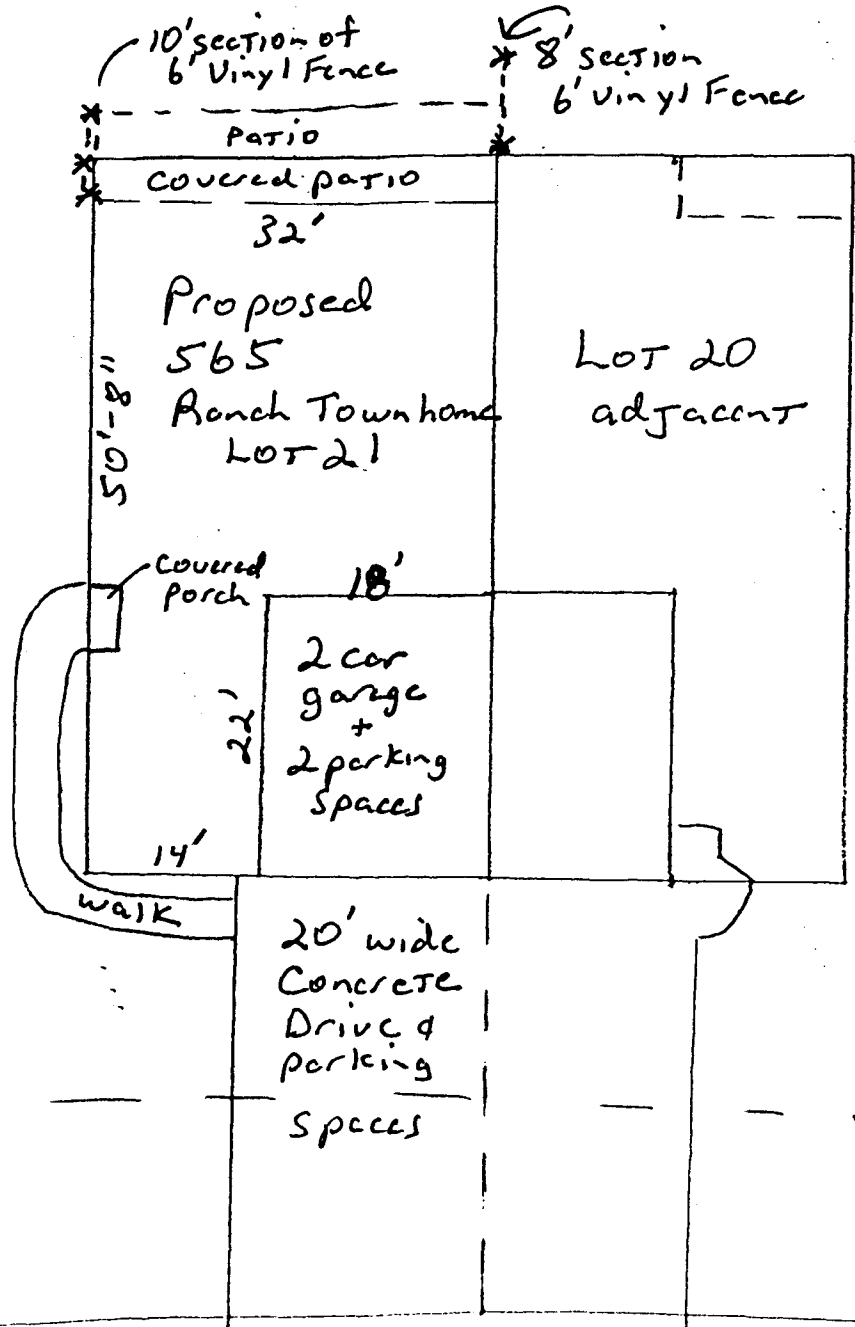 10' section of
6' Vinyl Fence
8' section
6' Vinyl Fence
Patio
Covered patio
32'
Proposed
565
Ranch Townhome
Lot 21
Lot 20
adjacent
50'-8"
Covered
Porch
18'
2 car
garage
+
2 parking
spaces
22'
14'
walk
20' wide
Concrete
Drive &
parking
spaces